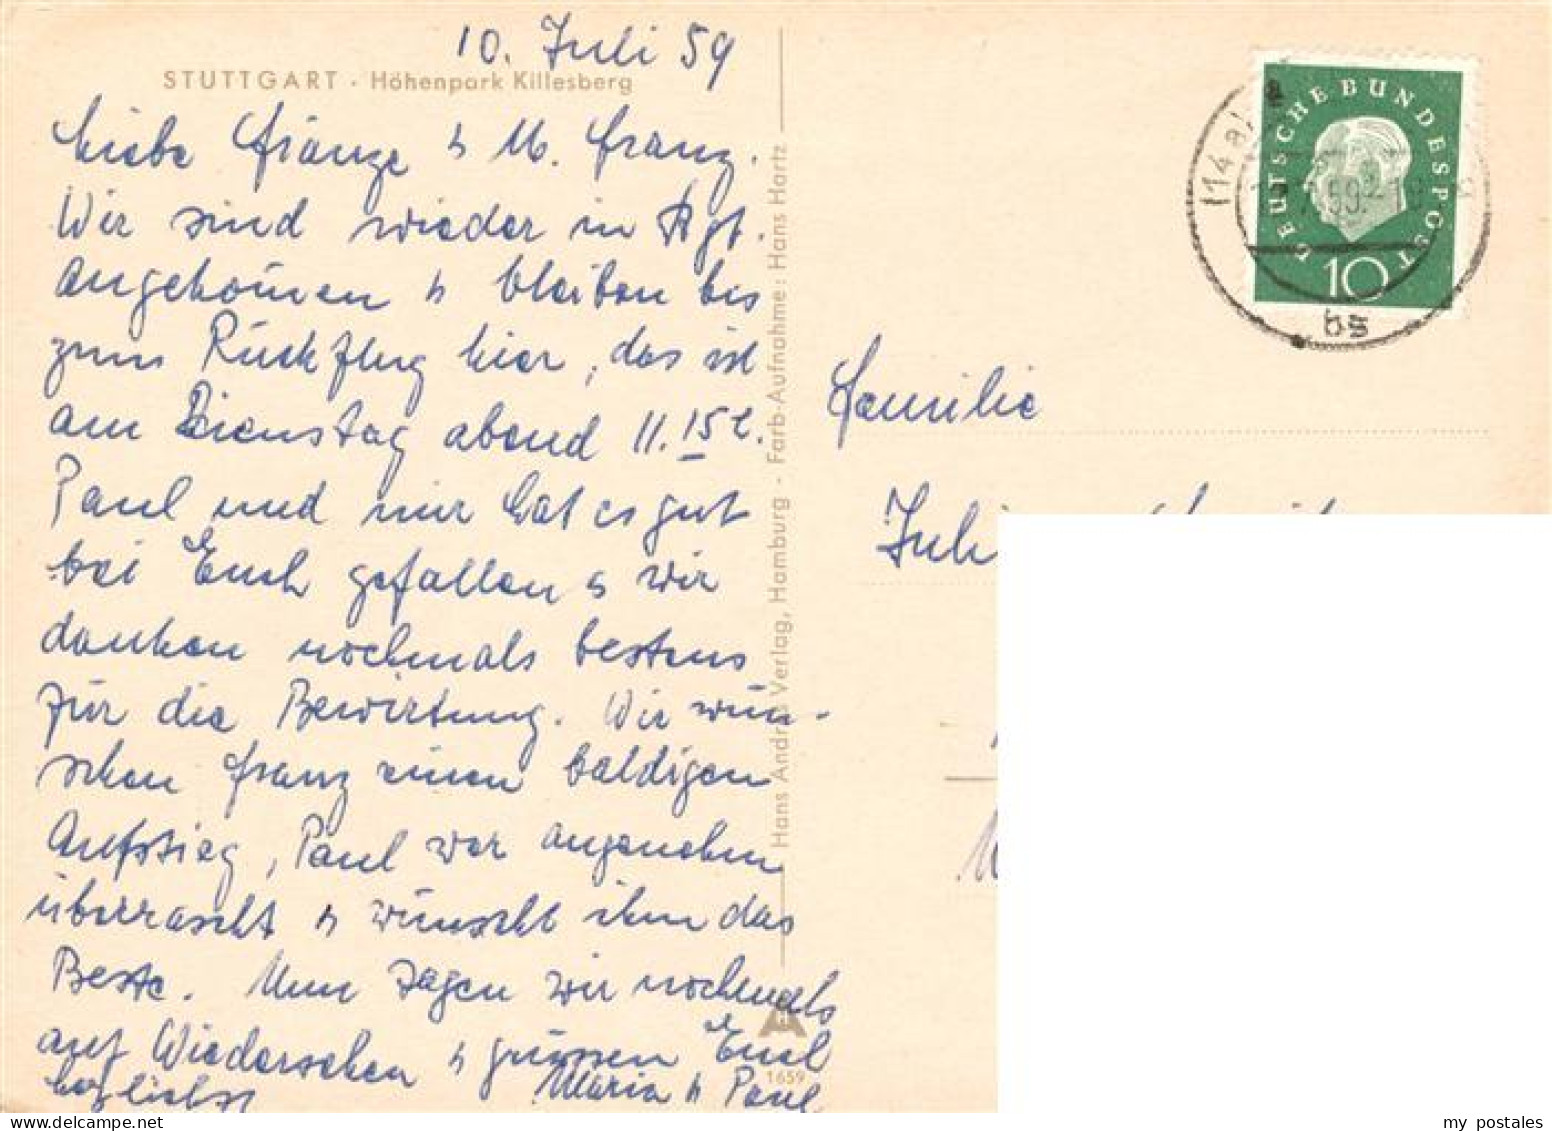 10. Juli 59
STUTTGART · Höhenpark Killesberg
Liebe Fränze u M. Franz.
Wir sind wieder in Stgt.
angekom̄en u bleiben bis
zum Rückflug hier, das ist
am Dienstag abend 11.15
Paul und mir hat es gut
bei Euch gefallen u wir
danken nochmals bestens
für die Bewirtung. Wir wün-
schen Franz einen baldigen
Aufstieg, Paul war angenehm
überrascht u wünscht ihm das
Beste. Nun sagen wir nochmals
auf Wiedersehen u grüssen Euch
herzlichst Maria u Paul
Hans Andres Verlag, Hamburg - Farb-Aufnahme: Hans Hartz
1659
DEUTSCHE BUNDESPOST
10
(14a)
59
bs
Familie
my postales